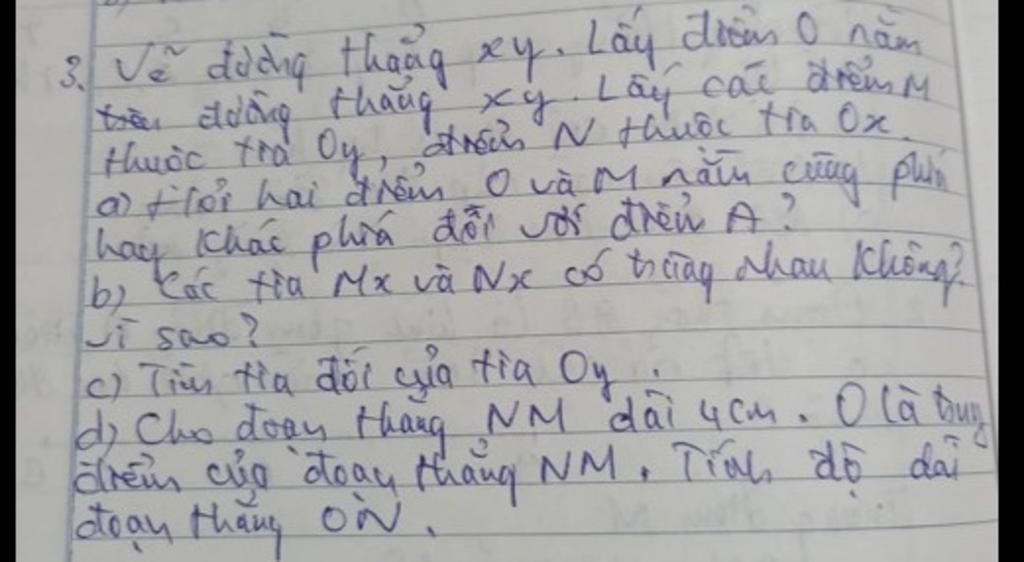 3. Vẽ đường thẳng xy. Lấy điểm O nằm
trên đường thẳng xy. Lấy các điểm M
thuộc tia Oy, điểm N thuộc tia Ox.
a) Hỏi hai điểm O và M nằm cùng phía
hay khác phía đối với điểm A?
b) Các tia Mx và Nx có trùng nhau không?
Vì sao?
c) Tìm tia đối của tia Oy.
d) Cho đoạn thẳng NM dài 4cm. O là trung
điểm của đoạn thẳng NM. Tính độ dài
đoạn thẳng ON.